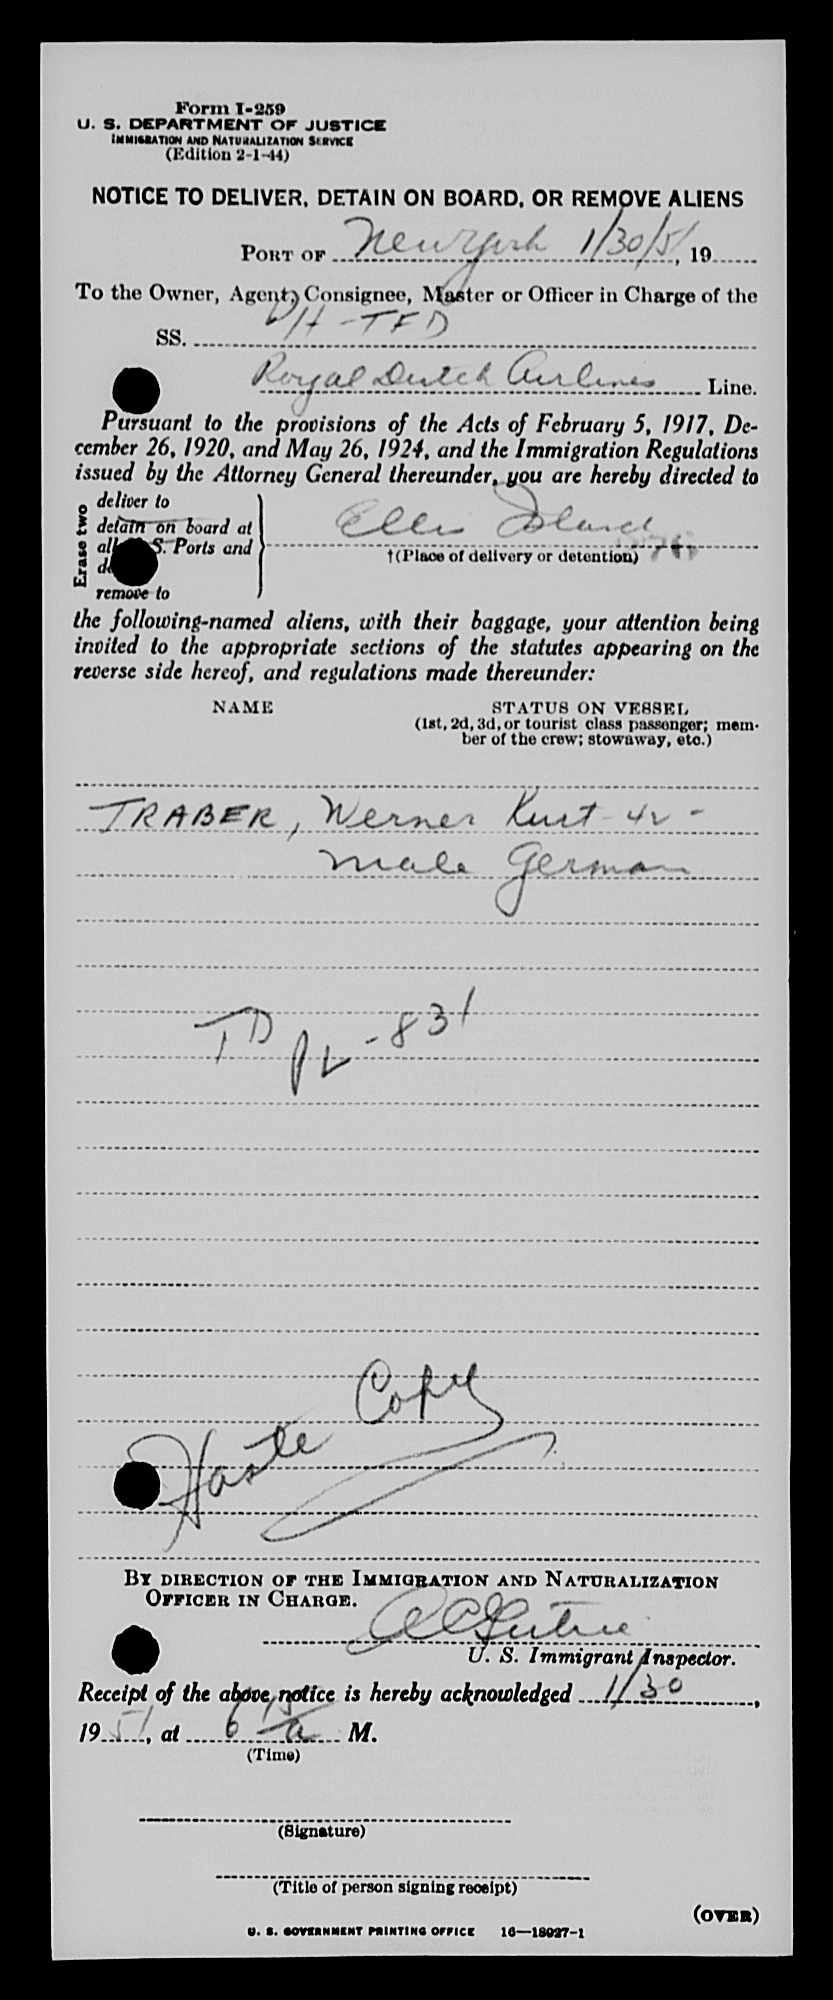 Form I-259
U. S. DEPARTMENT OF JUSTICE
IMMIGRATION AND NATURALIZATION SERVICE
(Edition 2-1-44)
NOTICE TO DELIVER, DETAIN ON BOARD, OR REMOVE ALIENS
PORT OF New York 1/30/51, 19
To the Owner, Agent, Consignee, Master or Officer in Charge of the
SS. PH-TFD
Royal Dutch Airlines Line.
Pursuant to the provisions of the Acts of February 5, 1917, De-
cember 26, 1920, and May 26, 1924, and the Immigration Regulations
issued by the Attorney General thereunder, you are hereby directed to
Erase two
deliver to
detain on board at
all S. Ports and
remove to
Ellis Island
†(Place of delivery or detention)
the following-named aliens, with their baggage, your attention being
invited to the appropriate sections of the statutes appearing on the
reverse side hereof, and regulations made thereunder:
NAME STATUS ON VESSEL
(1st, 2d, 3d, or tourist class passenger; mem-
ber of the crew; stowaway, etc.)
TRABER, Werner Kurt - 42 -
male German
TD PL - 831
Haste Copy
BY DIRECTION OF THE IMMIGRATION AND NATURALIZATION
OFFICER IN CHARGE.
U. S. Immigrant Inspector.
Receipt of the above notice is hereby acknowledged 1/30,
1951, at 6 15 a M.
(Time)
(Signature)
(Title of person signing receipt)
(OVER)
U. S. GOVERNMENT PRINTING OFFICE 16—18027-1